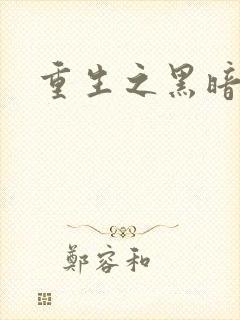 重生之黑暗
鄭容和